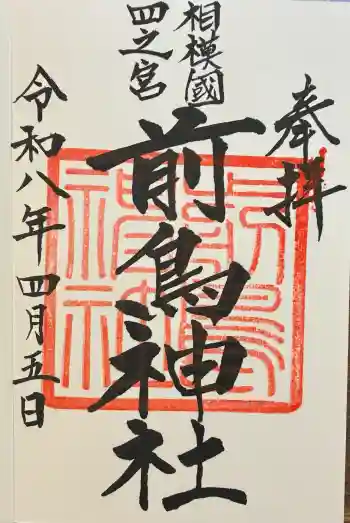 奉拝
相模國
四之宮
前鳥神社
令和八年四月五日